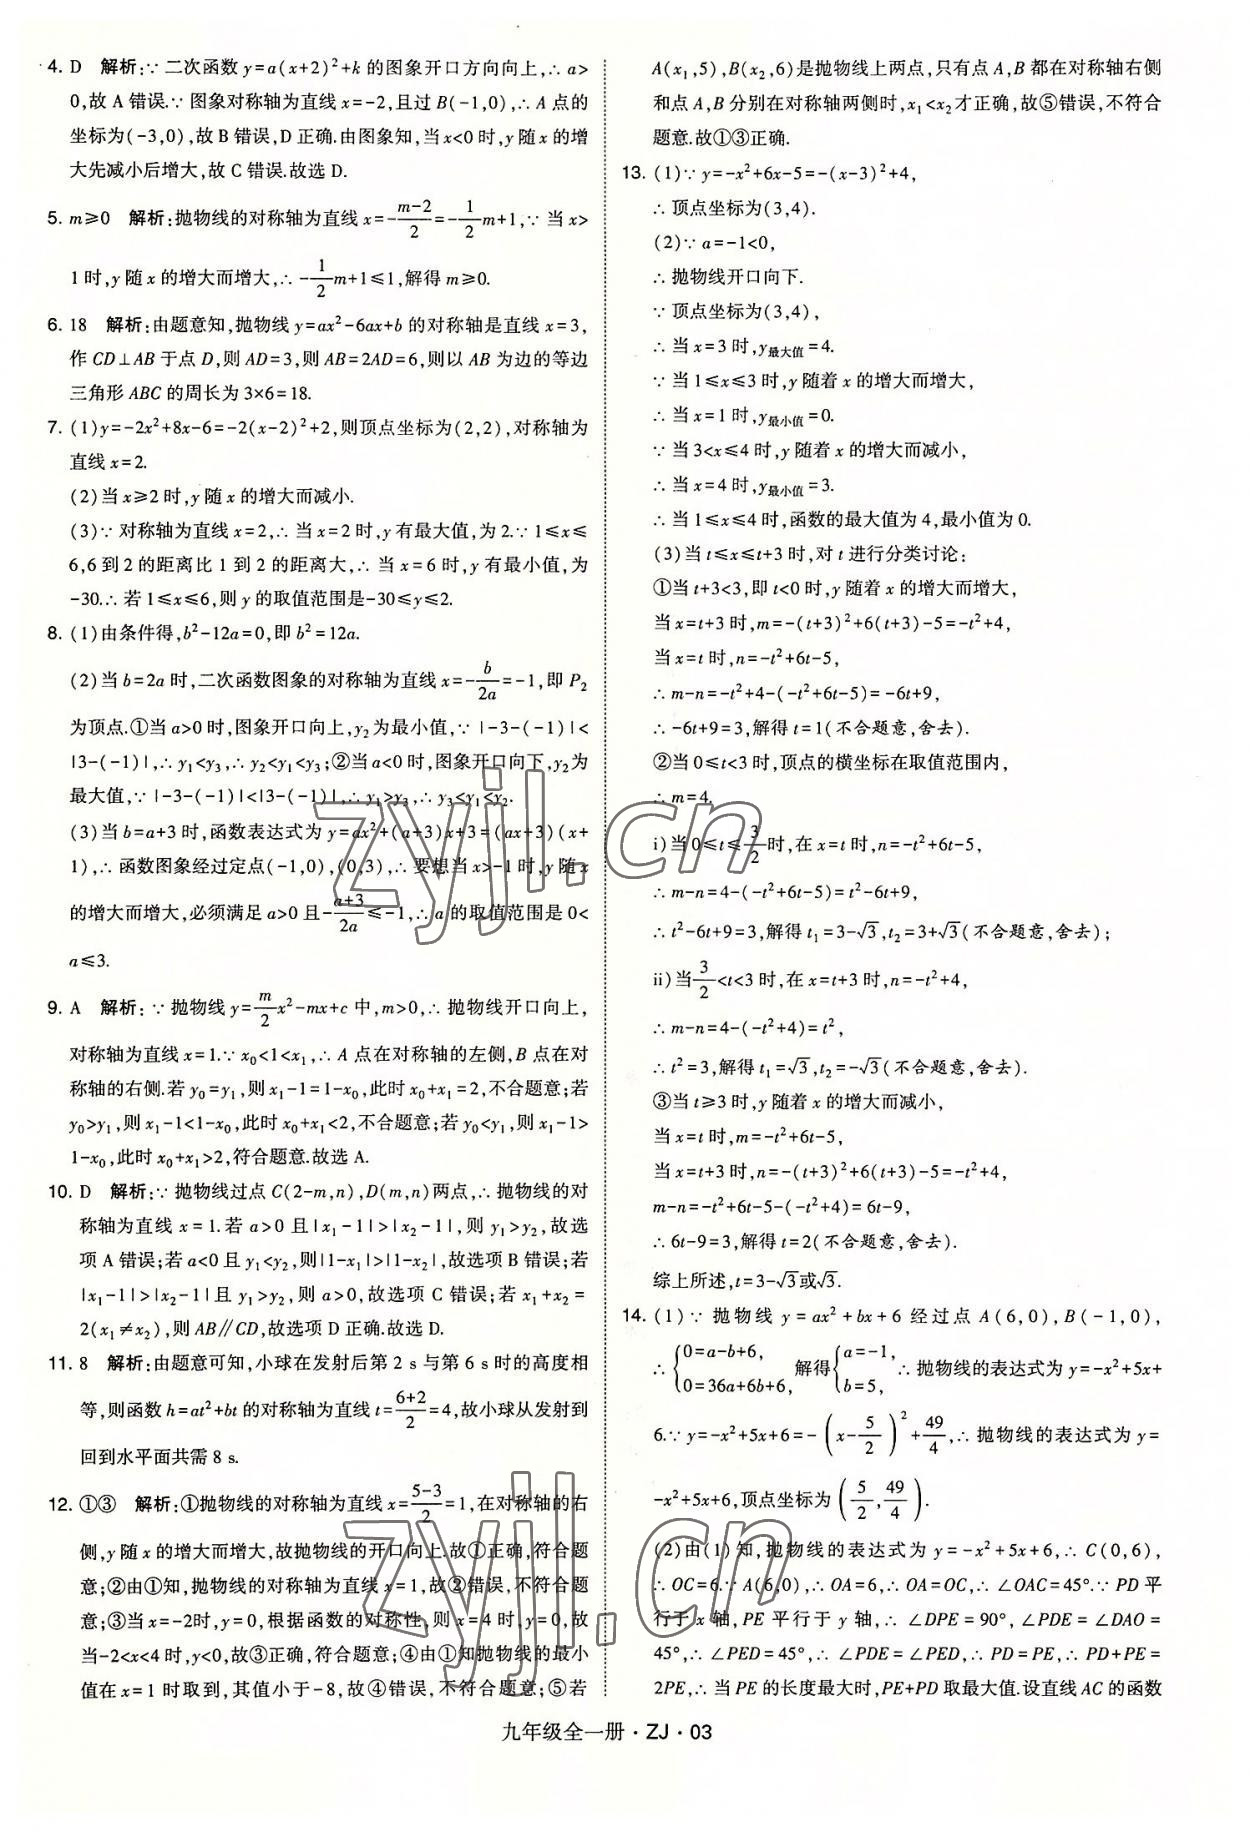 4. D　解析:∵ 二次函数 y=a(x+2)²+k 的图象开口方向向上,∴ a>
0,故 A 错误.∵ 图象对称轴为直线 x=-2,且过 B(-1,0),∴ A 点的
坐标为(-3,0),故 B 错误,D 正确.由图象知,当 x<0 时,y 随 x 的增
大先减小后增大,故 C 错误.故选 D.
5. m≥0　解析:抛物线的对称轴为直线 x=-\frac{m-2}{2}=-\frac{1}{2}m+1,∵ 当 x>
1 时,y 随 x 的增大而增大,∴ -\frac{1}{2}m+1≤1,解得 m≥0.
6. 18　解析:由题意知,抛物线 y=ax²-6ax+b 的对称轴是直线 x=3,
作 CD⊥AB 于点 D,则 AD=3,则 AB=2AD=6,则以 AB 为边的等边
三角形 ABC 的周长为 3×6=18.
7. (1)y=-2x²+8x-6=-2(x-2)²+2,则顶点坐标为(2,2),对称轴为
直线 x=2.
(2)当 x≥2 时,y 随 x 的增大而减小.
(3)∵ 对称轴为直线 x=2,∴ 当 x=2 时,y 有最大值,为 2.∵ 1≤x≤
6,6 到 2 的距离比 1 到 2 的距离大,∴ 当 x=6 时,y 有最小值,为
-30.∴ 若 1≤x≤6,则 y 的取值范围是-30≤y≤2.
8. (1)由条件得,b²-12a=0,即 b²=12a.
(2)当 b=2a 时,二次函数图象的对称轴为直线 x=-\frac{b}{2a}=-1,即 P₂
为顶点.①当 a>0 时,图象开口向上,y₂为最小值,∵ |-3-(-1)|<
|3-(-1)|,∴ y₁<y₃,∴ y₂<y₁<y₃;②当 a<0 时,图象开口向下,y₂为
最大值,∵ |-3-(-1)|<|3-(-1)|,∴ y₁>y₃,∴ y₃<y₁<y₂.
(3)当 b=a+3 时,函数表达式为 y=ax²+(a+3)x+3=(ax+3)(x+
1),∴ 函数图象经过定点(-1,0),(0,3),∴ 要想当 x>-1 时,y 随 x
的增大而增大,必须满足 a>0 且-\frac{a+3}{2a}≤-1,∴ a 的取值范围是 0<
a≤3.
9. A　解析: ∵ 抛物线 y=\frac{m}{2}x²-mx+c 中,m>0,∴ 抛物线开口向上,
对称轴为直线 x=1.∵ x₀<1<x₁,∴ A 点在对称轴的左侧,B 点在对
称轴的右侧.若 y₀=y₁,则 x₁-1=1-x₀,此时 x₀+x₁=2,不合题意;若
y₀>y₁,则 x₁-1<1-x₀,此时 x₀+x₁<2,不合题意;若 y₀<y₁,则 x₁-1>
1-x₀,此时 x₀+x₁>2,符合题意.故选 A.
10. D　解析:∵ 抛物线过点 C(2-m,n),D(m,n)两点,∴ 抛物线的对
称轴为直线 x=1.若 a>0 且|x₁-1|>|x₂-1|,则 y₁>y₂,故选
项 A 错误;若 a<0 且 y₁<y₂,则|1-x₁|>|1-x₂|,故选项 B 错误;若
|x₁-1|>|x₂-1|且 y₁>y₂,则 a>0,故选项 C 错误;若 x₁+x₂=
2(x₁≠x₂),则 AB∥CD,故选项 D 正确.故选 D.
11. 8　解析:由题意可知,小球在发射后第 2 s 与第 6 s 时的高度相
等,则函数 h=at²+bt 的对称轴为直线 t=\frac{6+2}{2}=4,故小球从发射到
回到水平面共需 8 s.
12. ①③　解析:①抛物线的对称轴为直线 x=\frac{5-3}{2}=1,在对称轴的右
侧,y 随 x 的增大而增大,故抛物线的开口向上.故①正确,符合题
意;②由①知,抛物线的对称轴为直线 x=1,故②错误,不符合题
意;③当 x=-2时,y=0,根据函数的对称性,则 x=4 时,y=0,故
当-2<x<4 时,y<0,故③正确,符合题意;④由①知抛物线的最小
值在 x=1 时取到,其值小于-8,故④错误,不符合题意;⑤若
A(x₁,5),B(x₂,6)是抛物线上两点,只有点 A,B 都在对称轴右侧
和点 A,B 分别在对称轴两侧时,x₁<x₂才正确,故⑤错误,不符合
题意.故①③正确.
13. (1)∵ y=-x²+6x-5=-(x-3)²+4,
∴ 顶点坐标为(3,4).
(2)∵ a=-1<0,
∴ 抛物线开口向下.
∵ 顶点坐标为(3,4),
∴ 当 x=3 时,y最大值=4.
∵ 当 1≤x≤3 时,y 随着 x 的增大而增大,
∴ 当 x=1 时,y最小值=0.
∵ 当 3<x≤4 时,y 随着 x 的增大而减小,
∴ 当 x=4 时,y最小值=3.
∴ 当 1≤x≤4 时,函数的最大值为 4,最小值为 0.
(3)当 t≤x≤t+3 时,对 t 进行分类讨论:
①当 t+3<3,即 t<0 时,y 随着 x 的增大而增大,
当 x=t+3 时,m=-(t+3)²+6(t+3)-5=-t²+4,
当 x=t 时,n=-t²+6t-5,
∴ m-n=-t²+4-(-t²+6t-5)=-6t+9,
∴ -6t+9=3,解得 t=1(不合题意,舍去).
②当 0≤t<3 时,顶点的横坐标在取值范围内,
∴ m=4.
i)当 0≤t≤\frac{3}{2}时,在 x=t 时,n=-t²+6t-5,
∴ m-n=4-(-t²+6t-5)=t²-6t+9,
∴ t²-6t+9=3,解得 t₁=3-√3,t₂=3+√3(不合题意,舍去);
ii)当\frac{3}{2}<t<3 时,在 x=t+3 时,n=-t²+4,
∴ m-n=4-(-t²+4)=t²,
∴ t²=3,解得 t₁=√3,t₂=-√3(不合题意,舍去).
③当 t≥3 时,y 随着 x 的增大而减小,
当 x=t 时,m=-t²+6t-5,
当 x=t+3 时,n=-(t+3)²+6(t+3)-5=-t²+4,
m-n=-t²+6t-5-(-t²+4)=6t-9,
∴ 6t-9=3,解得 t=2(不合题意,舍去).
综上所述,t=3-√3或√3.
14. (1)∵ 抛物线 y=ax²+bx+6 经过点 A(6,0),B(-1,0),
∴ {0=a-b+6, 0=36a+6b+6, 解得{a=-1, b=5, ∴ 抛物线的表达式为 y=-x²+5x+
6.∵ y=-x²+5x+6=-(x-\frac{5}{2})²+\frac{49}{4},∴ 抛物线的表达式为 y=
-x²+5x+6,顶点坐标为(\frac{5}{2},\frac{49}{4}).
(2)由(1)知,抛物线的表达式为 y=-x²+5x+6,∴ C(0,6),
∴ OC=6.∵ A(6,0),∴ OA=6,∴ OA=OC,∴ ∠OAC=45°.∵ PD 平
行于 x 轴,PE 平行于 y 轴,∴ ∠DPE=90°,∠PDE=∠DAO=
45°,∴ ∠PED=45°,∴ ∠PDE=∠PED,∴ PD=PE,∴ PD+PE=
2PE,∴ 当 PE 的长度最大时,PE+PD 取最大值.设直线 AC 的函数
九年级全一册·ZJ·03
zyjl.cn
zyjl.cn